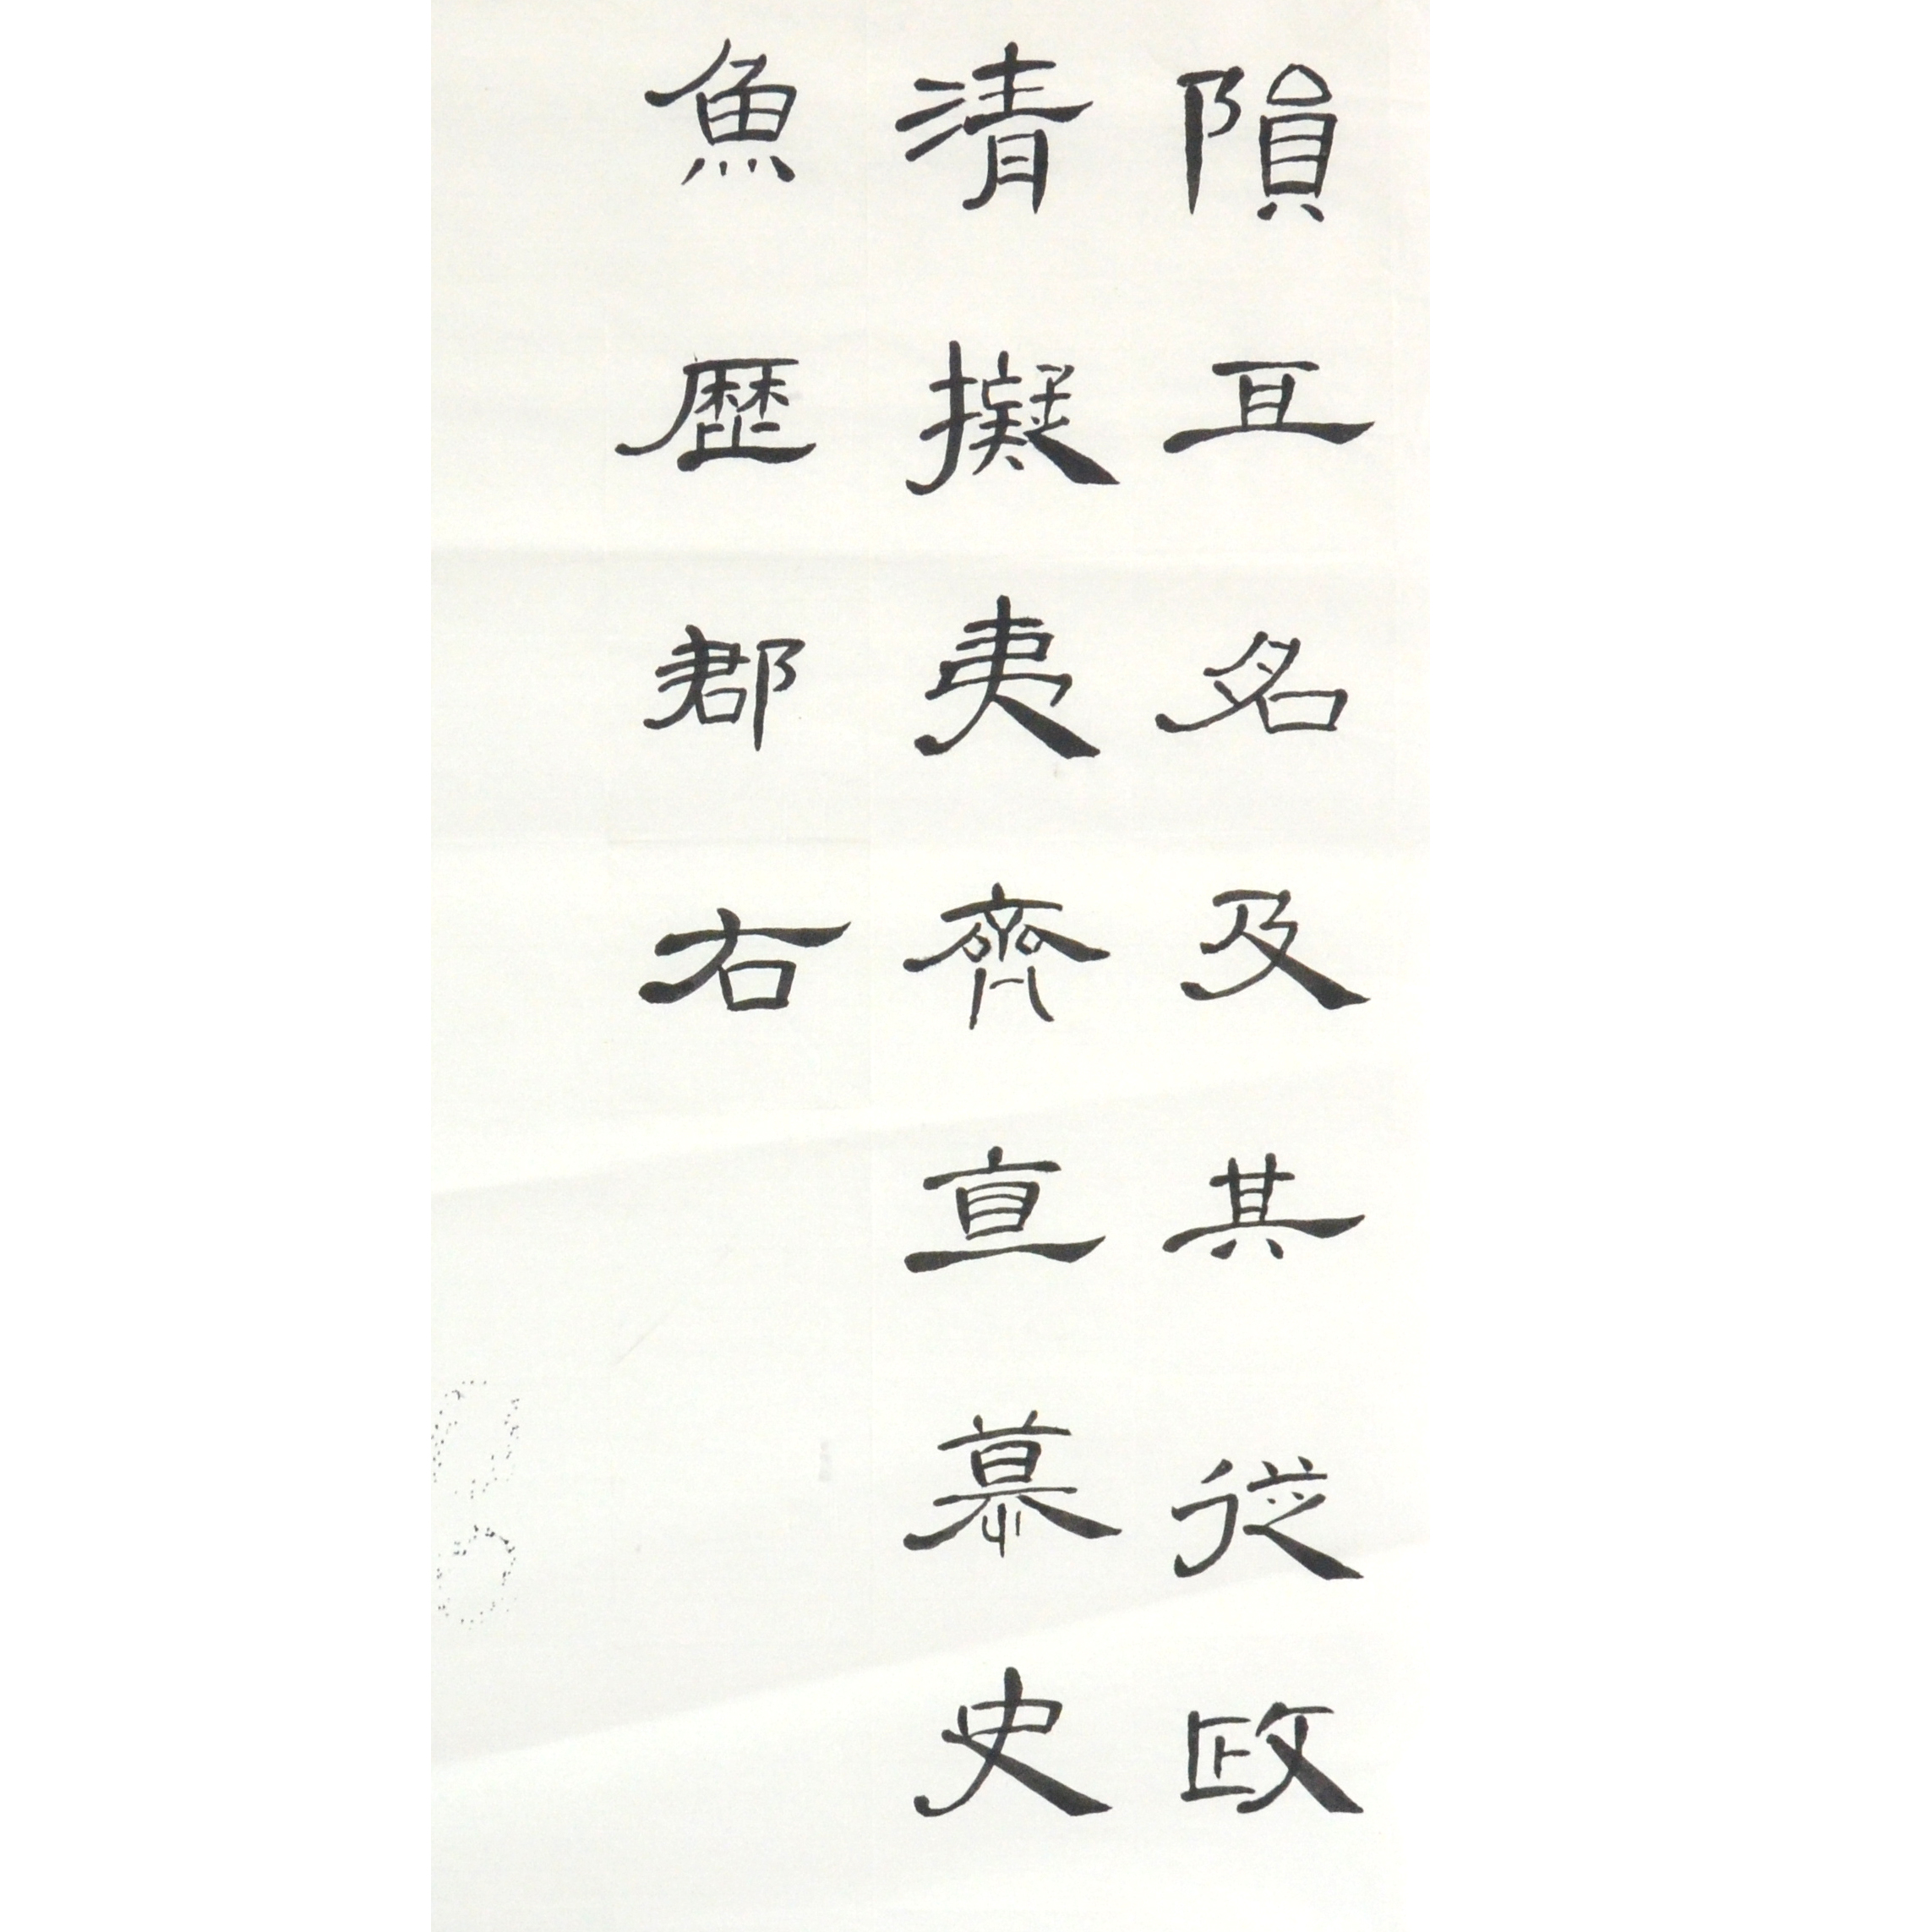 隕其名及其從政
清擬夷齊直慕史
魚歷郡右